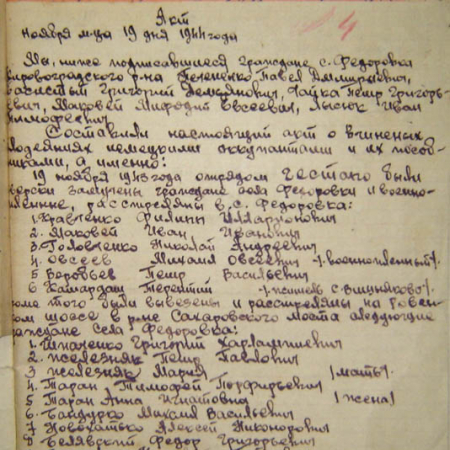 4
Акт
Ноября м-ца 19 дня 1944 года
Мы, ниже подписавшиеся граждане с. Федоровка
ировоградского р-на Павел Дмитриевич,
Григорий Демьянович, Гайка Петр Григорь-
евич, Маковей Мифодий Евсеевич, Лысюк Иван
имофеевич
Составили настоящий акт о вчиненых
лодеяниях немецкими оккупантами и их пособ-
никами, а именно:
19 ноября 1943 года отрядом гестапо были
верски замучены граждане села Федоровки и военно-
пленные, расстреляны в с. Федоровка:
1. Кравченко Филипп Илларионович
2. Маковей Иван Иванович
3. Головченко Николай Андреевич
4 Овсеев Михаил Овсеевич -/военнопленный/.
5 Воробьев Петр Васильевич
6 Камардаш Терентий -/житель с.
роме того были вывезены и расстреляны на Ровен-
ком шоссе в р-не Сахаровского моста следующие
раждане села Федоровка:
1. Шпаченко Григорий Харлампиевич
2. Железняк Петр Павлович
3 Железняк Мария /мать/.
4. Таран Тимофей Порфирьевич
5 Таран Анна Игнатовна /жена/
6. Байдурко Михаил Васильевич
7 Новохатько Алексей Никонорович
8 Белявский Федор Григорьевич